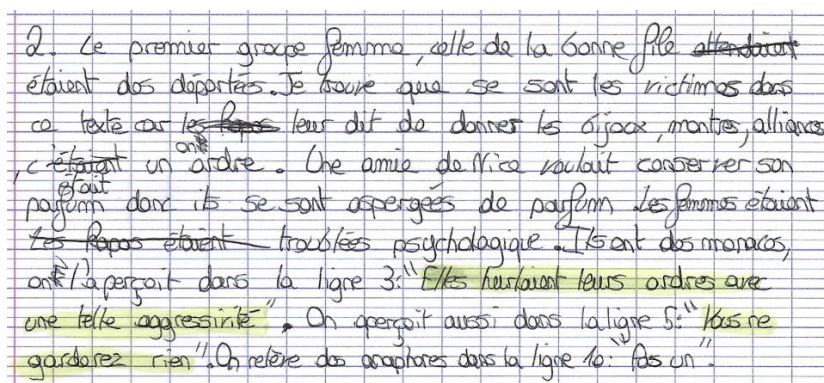 2. Le premier groupe femme, celle de la bonne file attendaient
étaient des déportées. Je trouve que se sont les victimes dans
ce texte car les Kapos leur dit de donner les bijoux, montres, alliances
, c'étaient était un ordre. Une amie de Nice voulait conserver son
parfum donc ils se sont aspergées de parfum Les femmes étaient
Les Kapos étaient troublées psychologique. Ils ont des menaces,
on l'aperçoit dans la ligne 3: "Elles hurlaient leurs ordres avec
une telle aggressivité". On aperçoit aussi dans la ligne 5: "Vous ne
garderez rien". On relève des anaphores dans la ligne 10: "Pas un".